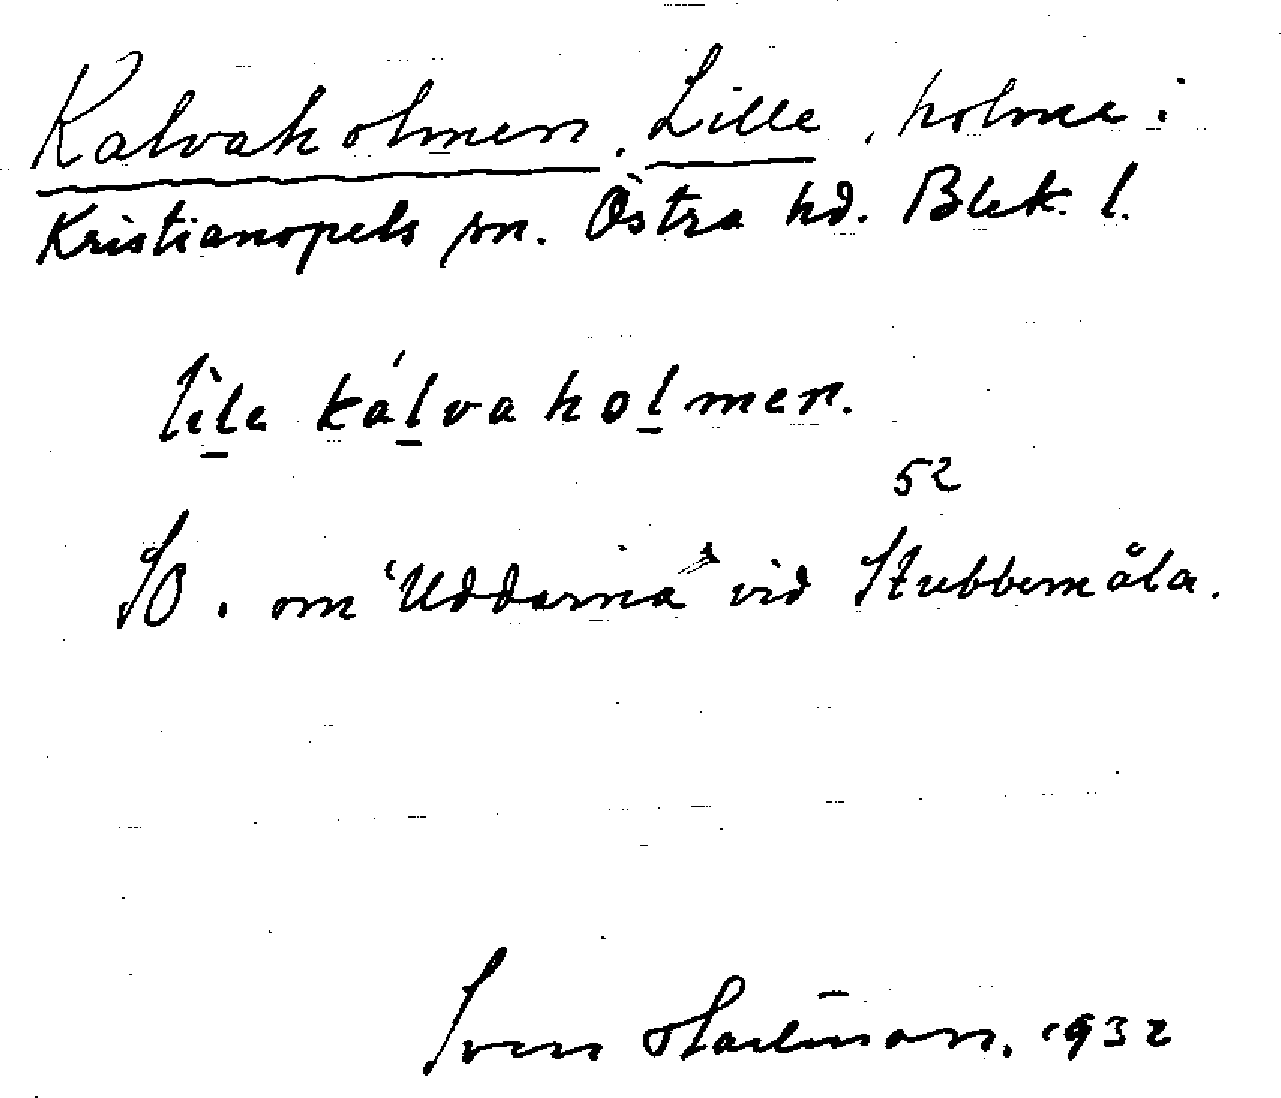 Kalvaholmen, Lille, holme i
Kristianopels sn. Östra hd. Blek. l.
lìle kálvaholmen.
52
SO. om "Uddarna" vid Stubbemåla.
Sven Hartman. 1932